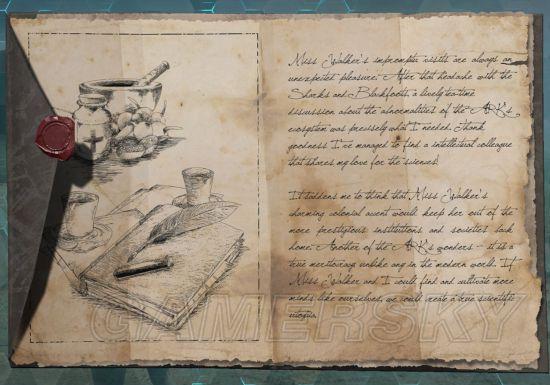 Miss Walker's impromptu visits are always an
unexpected pleasure. After that headache with the
Sharks and Blackfoots, a lively tea-time
discussion about the abnormalities of the ARK's
ecosystem was precisely what I needed. Thank
goodness I've managed to find a intellectual colleague
that shares my love for the sciences!
It saddens me to think that Miss Walker's
charming colonial accent would keep her out of the
more prestigious institutions and societies back
home. Another of the ARK's wonders - it is a
true meritocracy unlike any in the modern world. If
Miss Walker and I could find and cultivate more
minds like ourselves, we could create a true scientific
utopia.
GAMERSKY